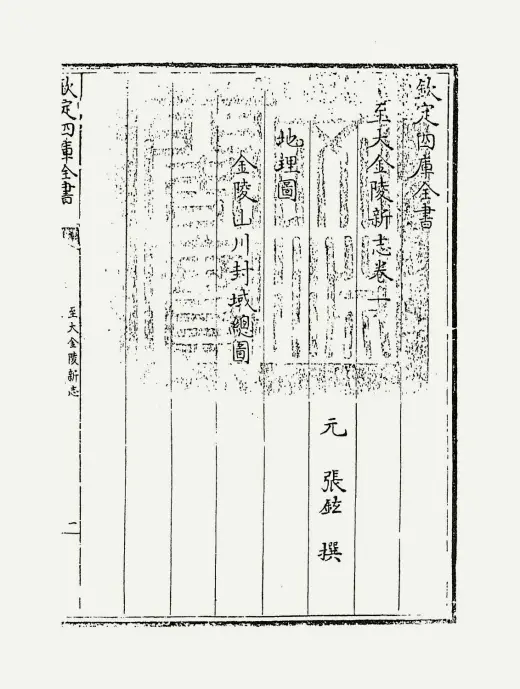 欽定四庫全書
至大金陵新志卷一
元 張鉉 撰
地理圖
金陵山川封域總圖
欽定四庫全書
至大金陵新志